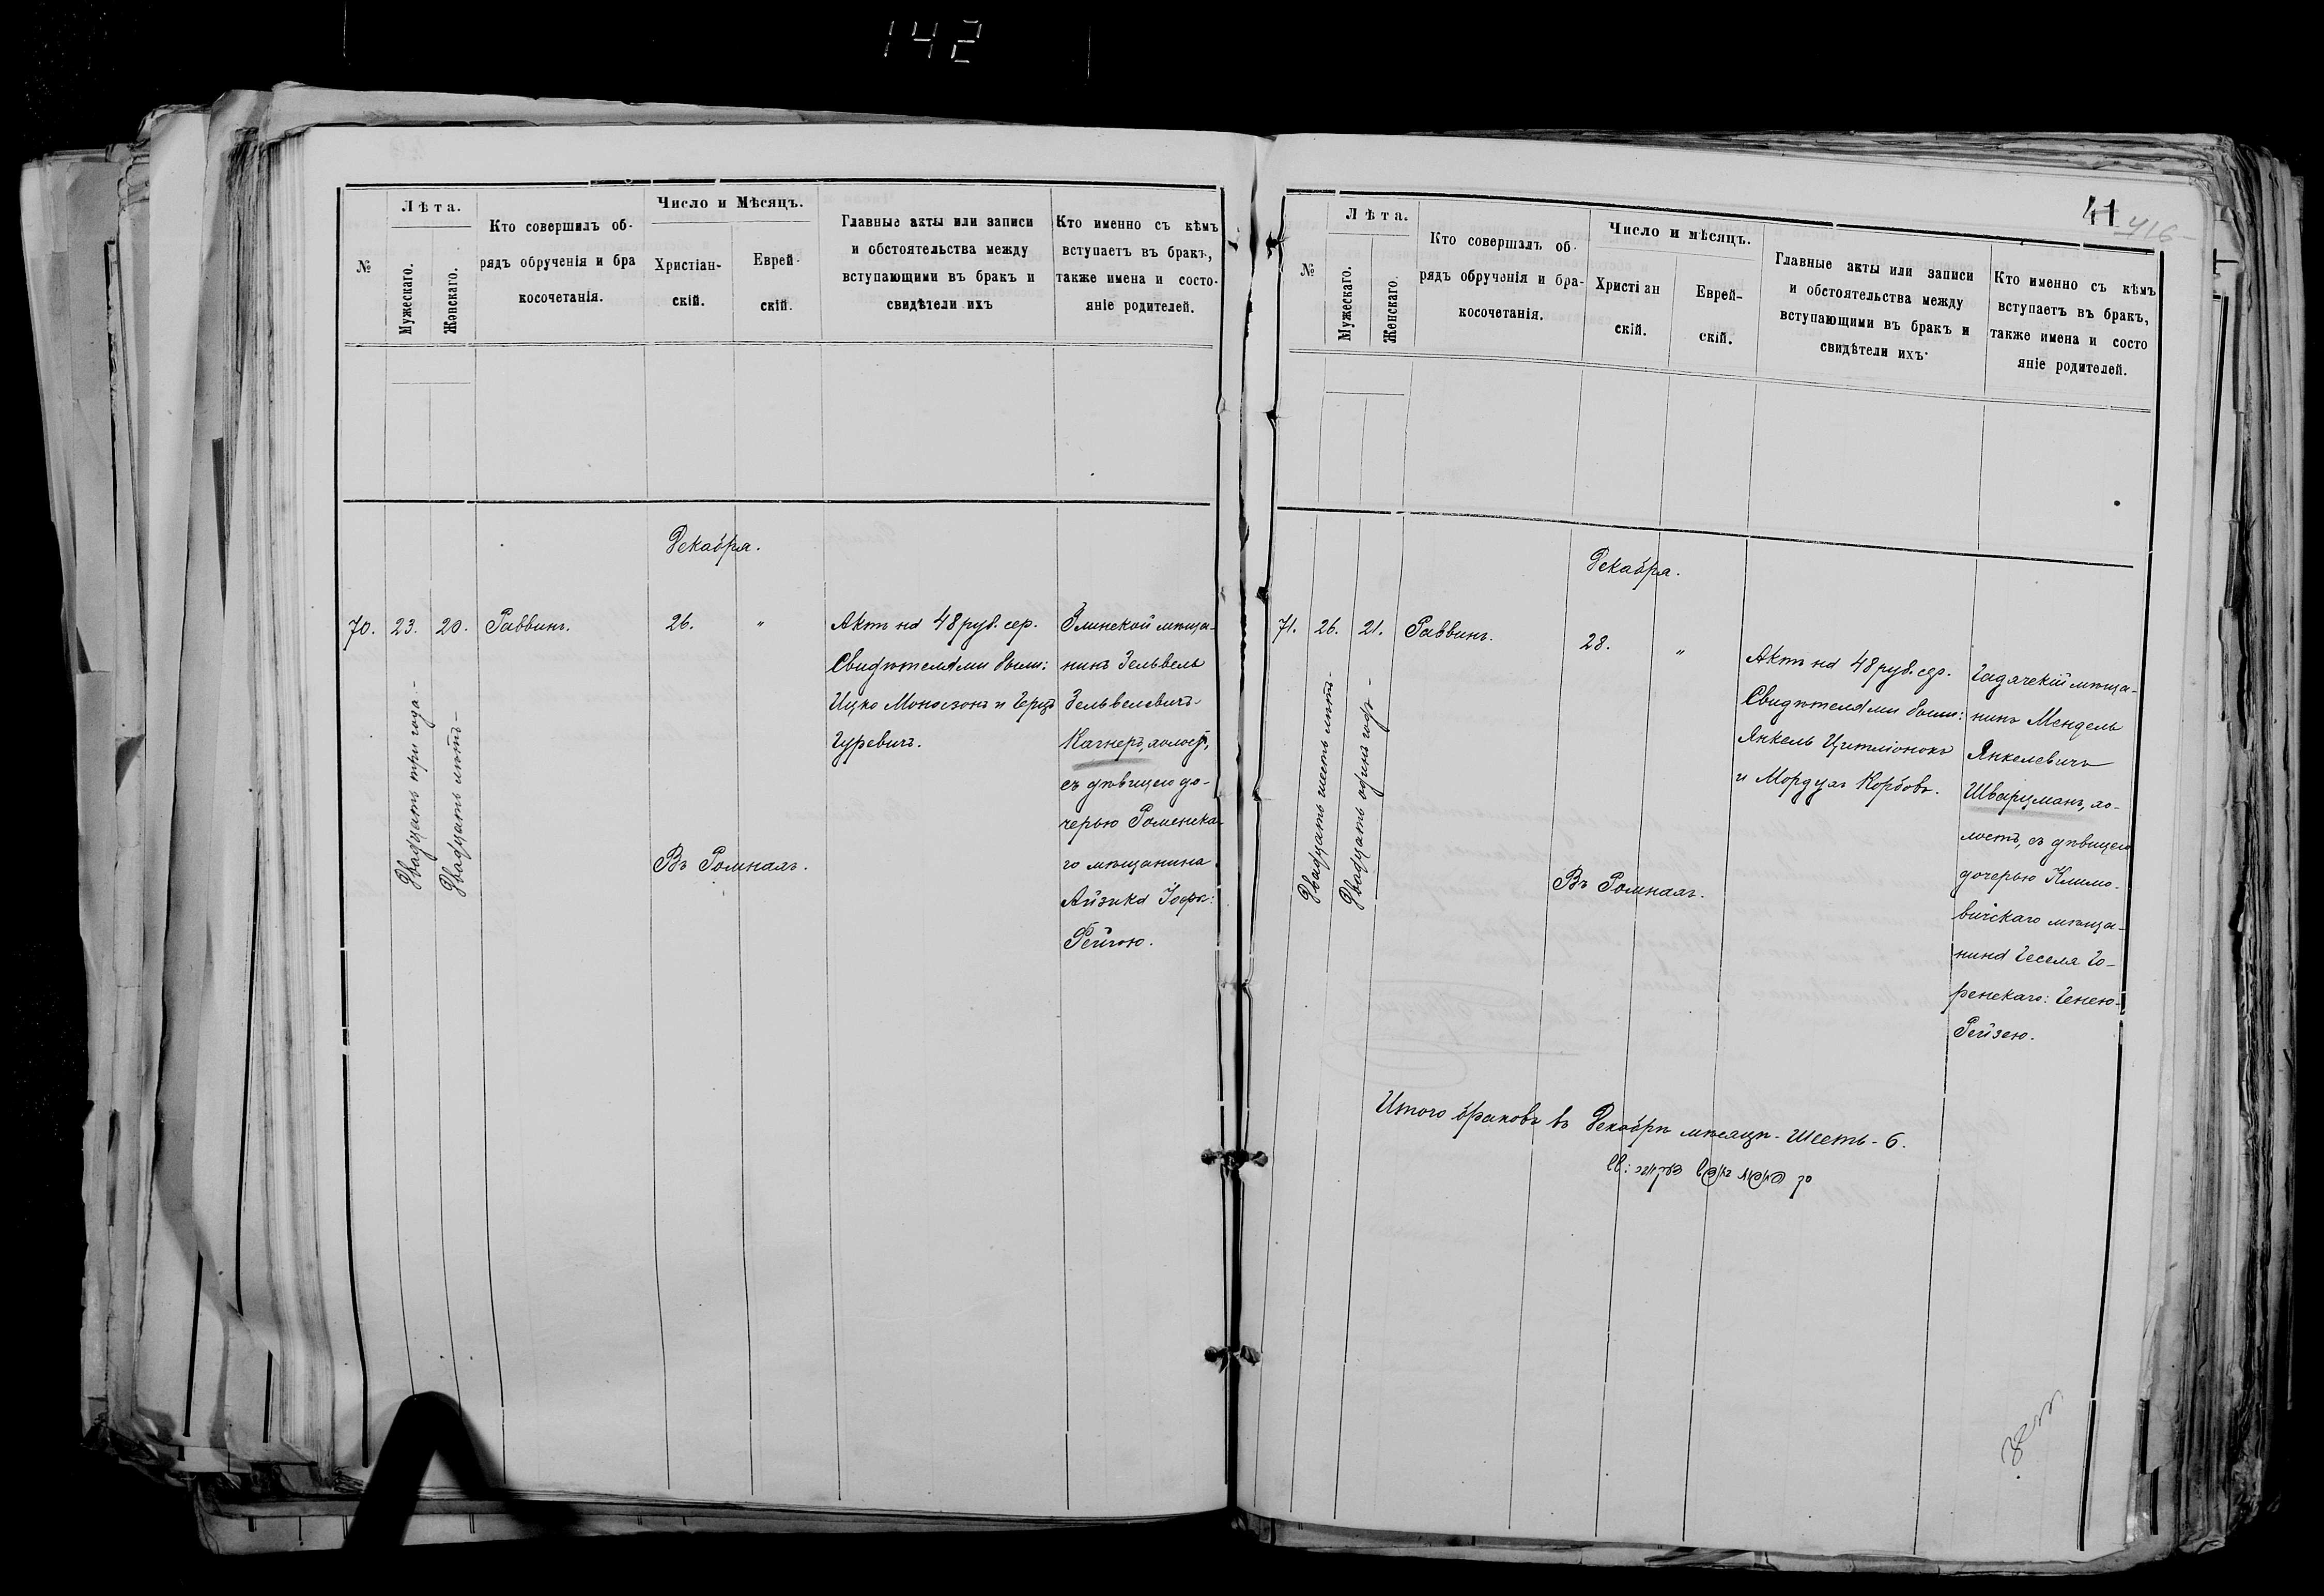 142
№
Лѣта.
Мужескаго.
Женскаго.
Кто совершилъ об-
рядъ обрученія и бра
косочетанія.
Число и Мѣсяцъ.
Христіан-
скій.
Еврей-
скій.
Главные акты или записи
и обстоятельства между
вступающими въ бракъ и
свидѣтели ихъ
Кто именно съ кѣмъ
вступаетъ въ бракъ,
также имена и состо-
яніе родителей.
Декабря.
70.
23.
Двадцать три года.-
20.
Двадцать лѣтъ-
Раввинъ.
26.
"
Въ Ромнахъ.
Актъ на 48 руб. сер.
Свидѣтелями были:
Ицко Моносзонъ и Герцъ
Гуревичъ.
Глинской мѣща-
нинъ Зельвель
Зельвелевичъ
Кагнеръ, холостъ,
съ дѣвицею до-
черью Роменска-
го мѣщанина
Айзика Іоффе:
Рейгою.
41
416-
№
Лѣта.
Мужескаго.
Женскаго.
Кто совершилъ об-
рядъ обрученія и бра-
косочетанія.
Число и мѣсяцъ.
Христіан
скій.
Еврей-
скій.
Главные акты или записи
и обстоятельства между
вступающими въ бракъ и
свидѣтели ихъ
Кто именно съ кѣмъ
вступаетъ въ бракъ,
также имена и состо
яніе родителей.
Декабря.
71.
26.
Двадцать шесть лѣтъ-
21.
Двадцать одинъ годъ-
Раввинъ.
28.
"
Въ Ромнахъ.
Актъ на 48 руб. сер.
Свидѣтелями были:
Янкель Цитліонокъ
и Мордухъ Корбовъ.
Гадячскій мѣща-
нинъ Мендель
Янкелевичъ
Шварцманъ, хо-
лостъ, съ дѣвицею
дочерью Климо-
вичскаго мѣща-
нина Геселя Го-
ренскаго: Генею-
Рейзею.
Итого браковъ въ Декабрѣ мѣсяцѣ- Шесть- 6.